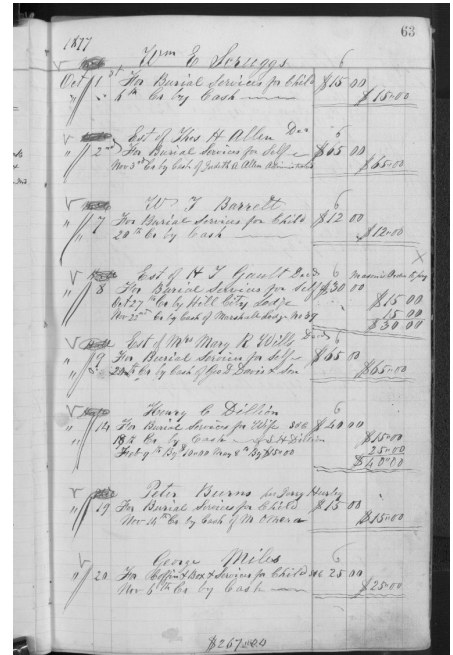 63
1877
Wm E Scruggs 6
Oct 1st For Burial Services for Child $15 00
" " 5th Cr by Cash $15=00
Est of Thos H Allen Decd 6
" 2nd For Burial Services for Self $65 00
Nov 3rd Cr by Cash of Judith A. Allen Administratrix $65=00
W T Barrett 6
" 7 For Burial Services for Child $12 00
20th Cr by Cash $12=00
Est of H T Gault Decd 6
" 8 For Burial Services for Self $30 00
Oct 27th Cr by Hill City Lodge $15 00
Nov 22nd Cr by Cash of Marshall Lodge No 39 15 00
$30 00
Est of Mrs Mary R Wills Decd 6
" 9 For Burial Services for Self $65 00
20th Cr by Cash of Geo D Davis & Son $65=00
Henry C Dillion 6
" 14 For Burial Services for Wife $40 00
18th Cr by Cash $15=00
Feby 9th By $10=00 May 8th By $15=00 25=00
$40=00
Peter Burns 6
" 19 For Burial Services for Child $15 00
Nov 14th Cr by Cash of M OMera $15=00
George Miles 6
" 20 For Coffin & Box & Services for Child 25 00
Nov 6th Cr by Cash $25=00
$267=00